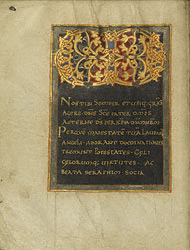 NOS TIBI SEMPER ET UBIQ; GRAS
AGERE DNE SCE PATER OMPS
AETERNE DS PER XPM DNM NRM
PER QUE MAIESTATE TUA LAUDANT
ANGELI ADORANT DOMINATIONES
TREMUNT POTESTATES CAELI
CAELORUMQ; UIRTUTES AC
BEATA SERAPHIM SOCIA